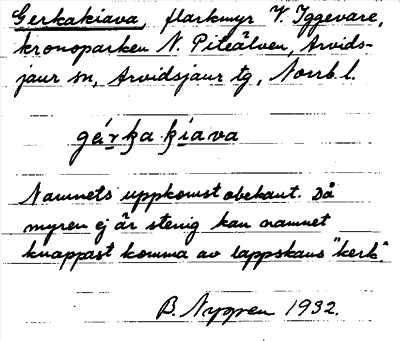 Gerkakiava, flarkmyr V. Iggevare,
kronoparken N. Piteälven, Arvids-
jaur sn, Arvidsjaur tg, Norrb. l.
geírka kiava
Namnets uppkomst obekant. Då
myren ej är stenig kan namnet
knappast komma av lappskans "kerk".
B. Nygren 1932.